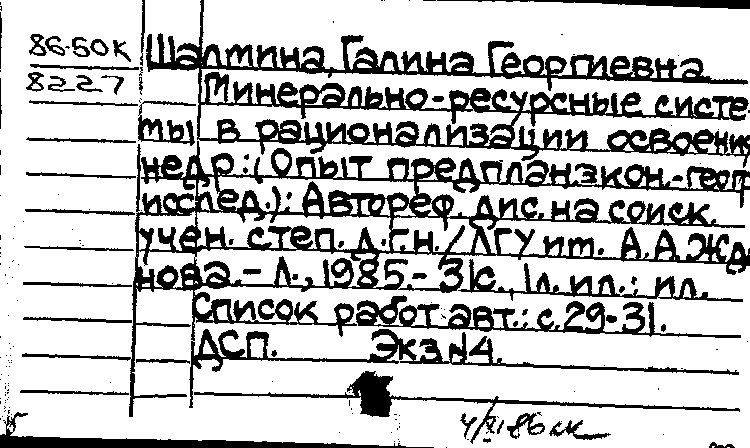 86-50к Шалтина, Галина Георгиевна
8227 Минерально-ресурсные систе-
мы в рационализации освоения
недр: (Опыт предплан.экон.-геогр
исслед.): Автореф. дис. на соиск.
учен. степ. д.г.н./ЛГУ им. А.А.Жда
нова.- Л., 1985.- 31с., 1л. ил.: ил.
Список работ авт.: с.29-31.
ДСП. Экз N4.